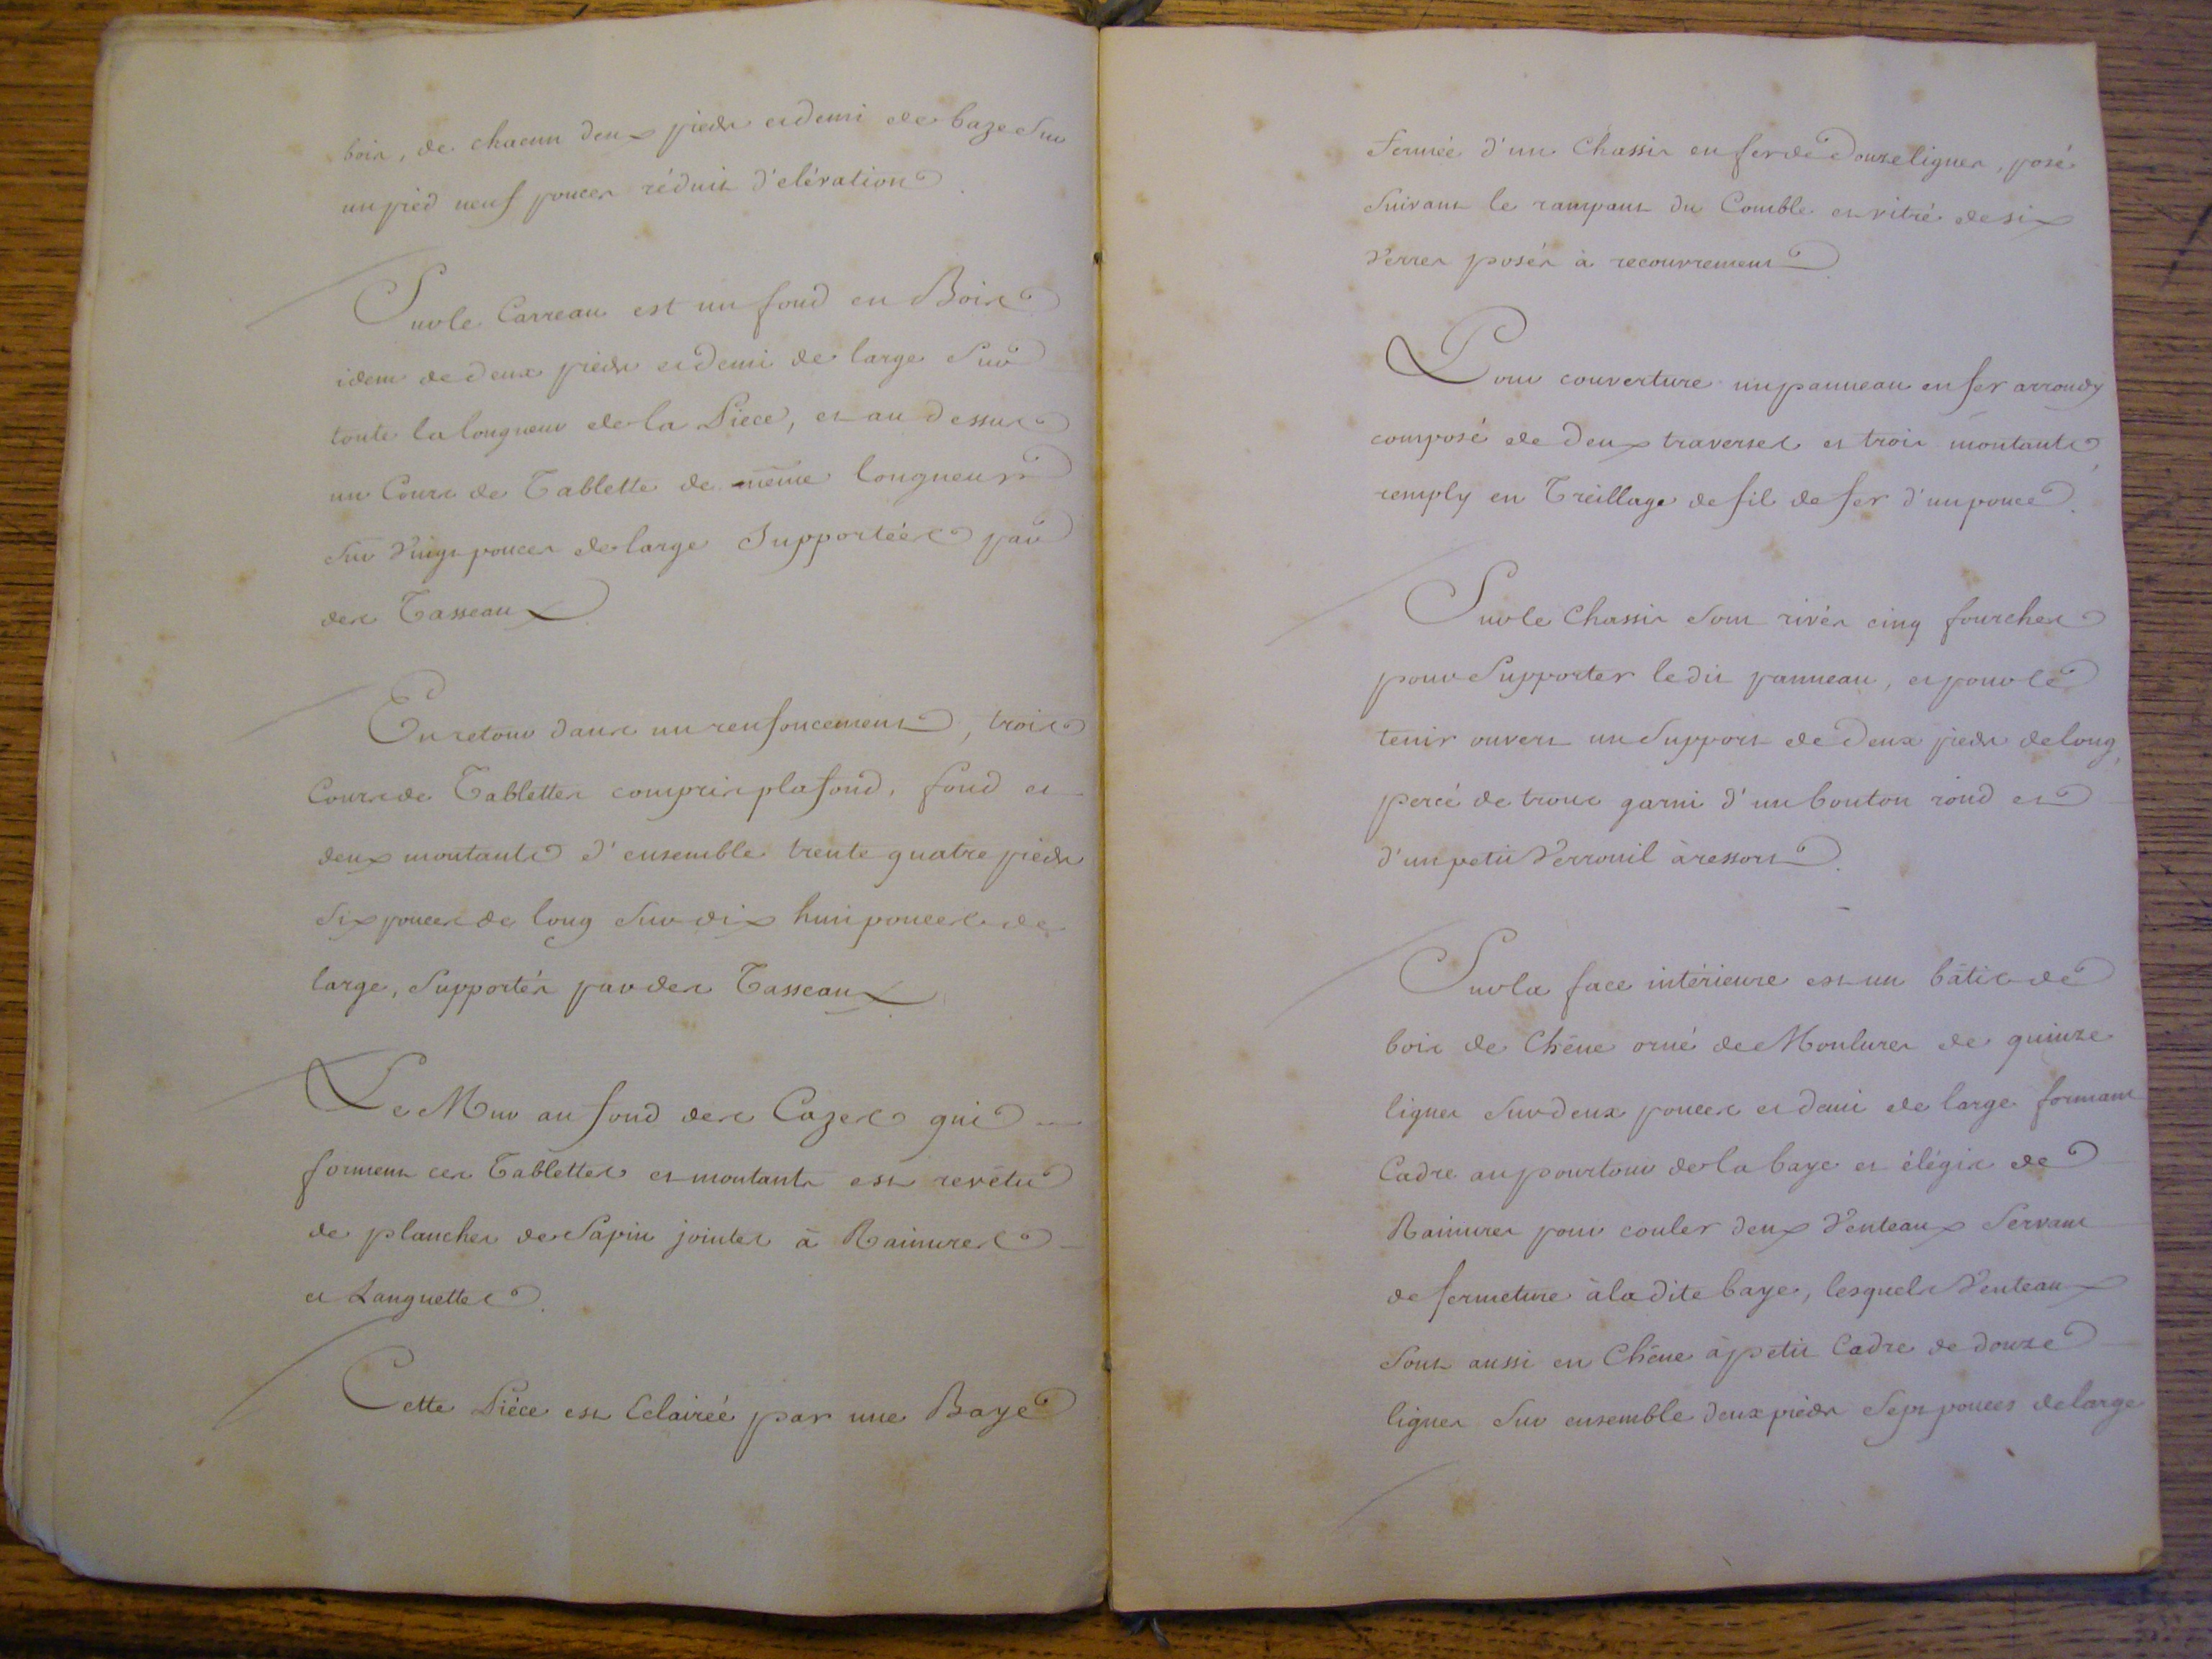 bois, de chacun deux pieds et demi de baze Sur
un pied neuf pouces réduit d'elévation
Sur le Carreau est un fond en Bois
idem de deux pieds et demi de large Sur
toute la longueur de la Piece, et au dessus
un Cours de Tablette de même longueur
Sur Vingt pouces de large Supportées par
des Tasseaux
En retour dans un renfoncement, trois
Cours de Tablettes compris plafond, fond et
deux montants d'ensemble trente quatre pieds
Six pouces de long Sur dix huit pouces de
large, Supportés par des Tasseaux
Le Mur au fond des Cazes qui
forment ces Tablettes et montants est revêtu
de planches de Sapin jointes à Rainures
et Languettes.
Cette Piéce est Eclairée par une Baye
fermée d'un Chassis en fer de Douze lignes, posé
Suivant le rampant du Comble et vitré de six
Verres posés à recouvrement.
Pour couverture un panneau en fer arrondy
composé de deux traverses et trois montants,
remply en Treillage de fil de fer d'un pouce.
Sur le Chassis Sont rivés cinq fourches
pour Supporter ledit panneau, et pour le
tenir ouvert un Support de deux pieds de long,
percé de trous garni d'un bouton rond et
d'un petit Verrouil à ressort.
Sur la face intérieure est un bâtis de
bois de Chêne orné de Moulures de quinze
lignes Sur deux pouces et demi de large formant
Cadre au pourtour de la baye et élégis de
Rainures pour couler deux Venteaux Servant
de fermeture à la dite baye, lesquels Venteaux
Sont aussi en Chêne à petit Cadre de douze
lignes Sur ensemble deux pieds Sept pouces de large